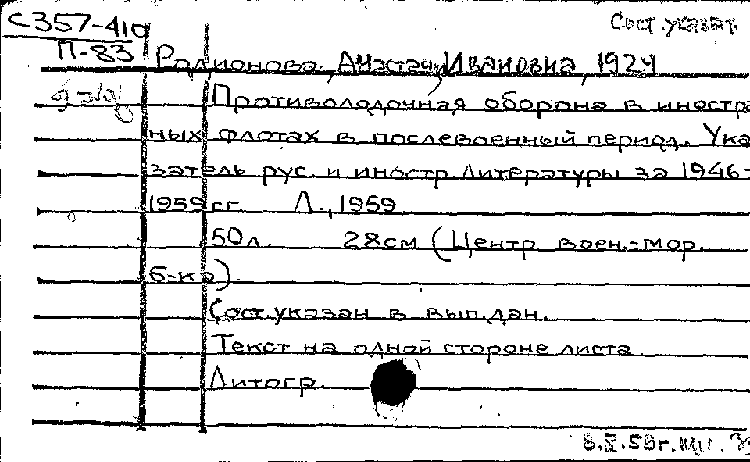 С357-410 Сост. указат.
П-83 Родионова, Анастас. Ивановна, 1924
Противолодочная оборона в иностра
ных флотах в послевоенный период. Ука
затель рус. и иностр литературы за 1946-
1959 гг. Л., 1959
50л. 28см (Центр воен.-мор.
б-ка)
Сост. указан в вып. дан.
Текст на одной стороне листа
Литогр.